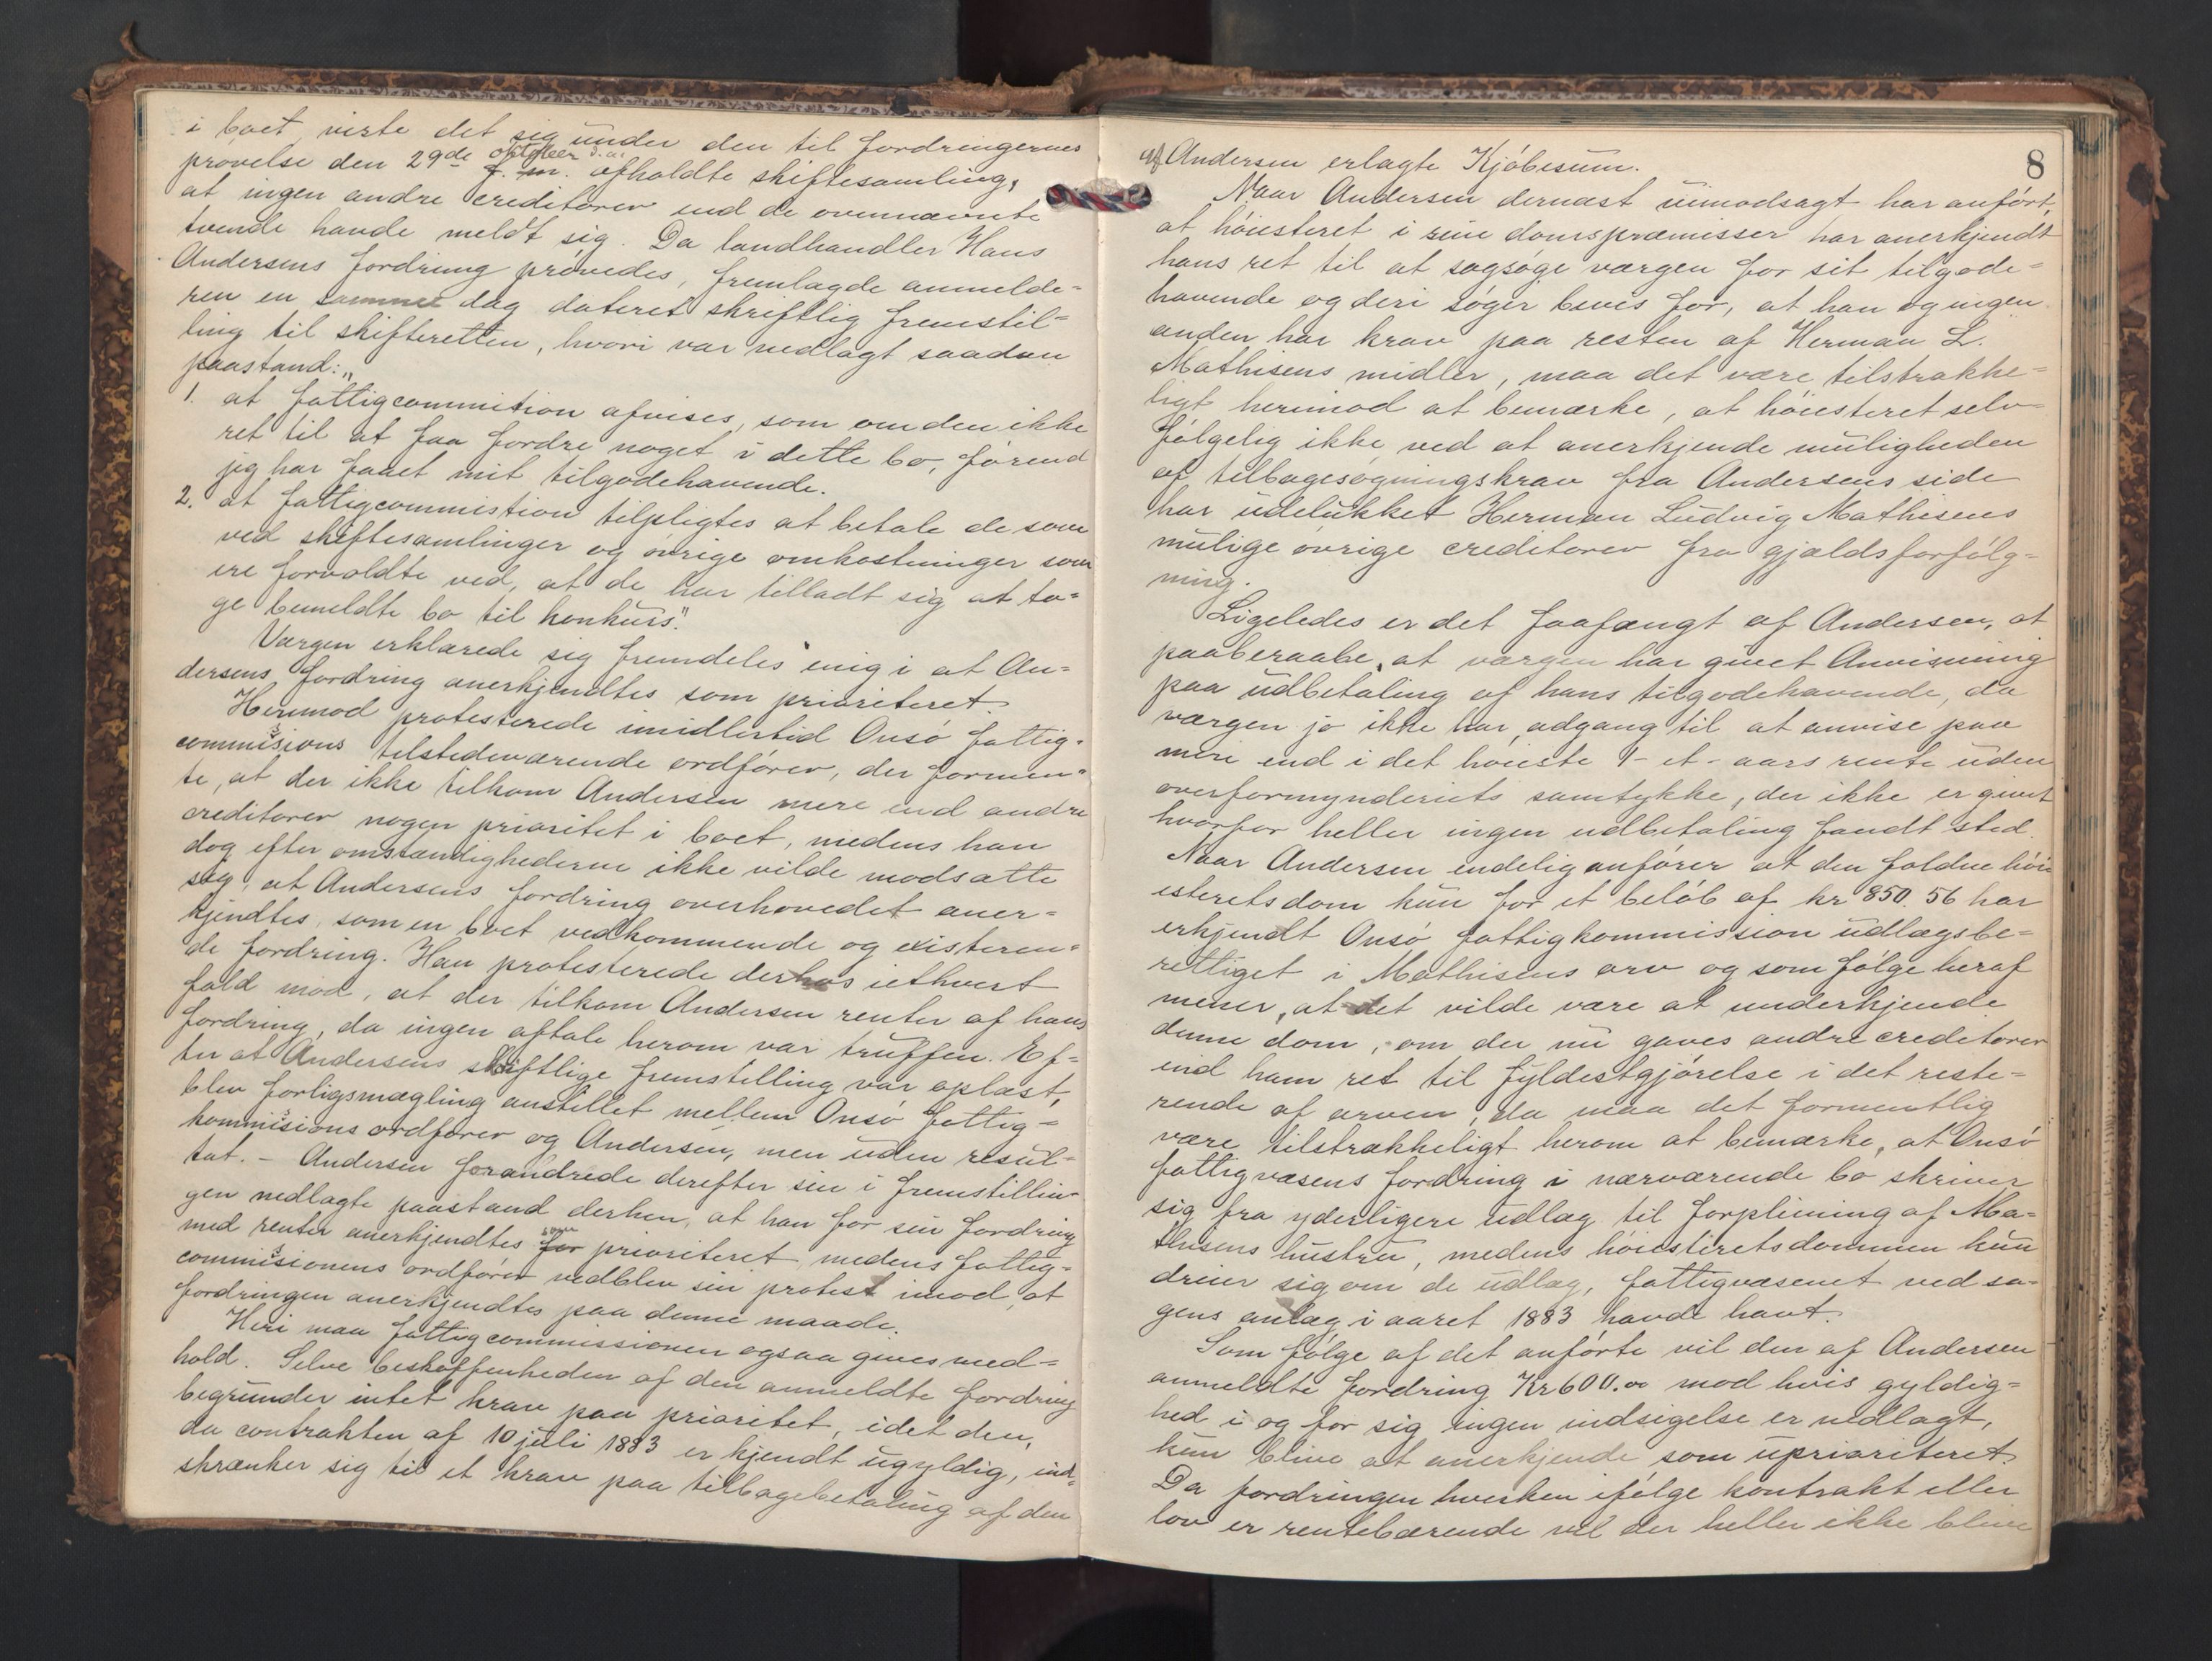 i boet, viste det sig under den til fordringernes
prøvelse den 29de oktober d. a. f. m. afholdte skiftesamling,
at ingen andre creditorer end de ovennævnte
tvende havde meldt sig. Da landhandler Hans
Andersens fordring prøvedes, fremlagde anmelde=
ren en samme dag dateret skriftlig fremstil=
ling til skifteretten, hvori var nedlagt saadan
paastand: „
1. at fattigcommition afvises, som om den ikke
ret til at faa fordre noget i dette bo, førend
jeg har faaet mit tilgodehavende.
2. at fattigcommistion tilpligtes at betale de som
ved skiftesamlinger og øvrige omkostninger som
ere forvoldte ved, at de har tilladt sig at ta=
ge bemeldte bo til konkurs."
Værgen erklærede sig fremdeles enig i at An=
dersens fordring anerkjendtes som prioriteret.
Herimod protesterede imidlertid Onsø fattig=
commisions tilstedeværende ordfører, der formen=
te, at der ikke tilkom Andersen mere end andre
creditorer nogen prioritet i boet, medens han
dog efter omstændighederne ikke vilde modsætte
sig, at Andersens fordring overhovedet aner=
kjendtes, som en boet vedkommende og existeren=
de fordring. Han protesterede derhos iethvert
fald mod, at der tilkom Andersen renter af hans
fordring, da ingen aftale herom var truffen. Ef=
ter at Andersens skriftlige fremstilling var oplæst,
blev forligsmægling anstillet mellem Onsø fattig=
kommisions ordfører og Andersen, men uden resul=
tat. - Andersen forandrede derefter sin i fremstillin=
gen nedlagte paastand derhen, at han for sin fordring
med renter anerkjendtes for som prioriteret medens fattig=
commisionens ordfører vedblev sin protest imod, at
fordringen anerkjendtes paa denne maade.
Heri maa fattigcommissionen ogsaa gives med=
hold. Selve beskaffenheden af den anmeldte fordring
begrunder intet krav paa prioritet, idet den,
da contrakten af 10 juli 1883 er kjendt ugyldig, ind=
skrænker sig til et krav paa tilbagebetaling af den
8
af Andersen erlagte Kjøbesum.
Naar Andersen dernæst uimodsagt har anført,
at høiesteret i sine domspræmisser har anerkjendt
hans ret til at sagsøge værgen for sit tilgode=
havende og deri søger bevis for, at han og ingen
anden har krav paa resten af Herman L.
Mathisens midler, maa det være tilstrække=
ligt herimod at bemærke, at høiesteret selv=
følgelig ikke ved at anerkjende muligheden
af tilbagesøgningskrav fra Andersens side
har udelukket Herman Ludvig Mathisens
mulige øvrige creditorer fra gjældsforfølg=
ning.
Ligeledes er det faafængt af Andersen, at
paaberaabe, at værgen har givet Anvisning
paa udbetaling af hans tilgodehavende, da
værgen jo ikke har adgang til at anvise paa
mere end i det høieste 1 - et - aars rente uden
overformynderiets samtykke, der ikke er givet
hvorfor heller ingen udbetaling fandt sted.
Naar Andersen endelig anfører at den faldne høi
esteretsdom kun for et beløb af kr 850.56 har
erkjendt Onsø fattigkommission udlægsbe=
rettiget i Mathisens arv og som følge heraf
mener, at det vilde være at underkjende
denne dom, om der nu gaves andre creditorer
end ham ret til fyldestgjørelse i det reste=
rende af arven, da maa det formentlig
være tilstrækkeligt herom at bemærke, at Onsø
fattigvæsens fordring i nærværende bo skriver
sig fra yderligere udlæg til forpleining af Ma=
thisens hustru, medens høiesteretsdommen kun
dreier sig om de udlæg, fattigvæsenet ved sa=
gens anlæg i aaret 1883 havde havt.
Som følge af det anførte vil den af Andersen
anmeldte fordring Kr 600.00 mod hvis gyldig=
hed i og for sig ingen indsigelse er nedlagt,
kun blive at anerkjende som uprioriteret.
Da fordringen hverken ifølge kontrakt eller
lov er rentebærende vil der heller ikke blive